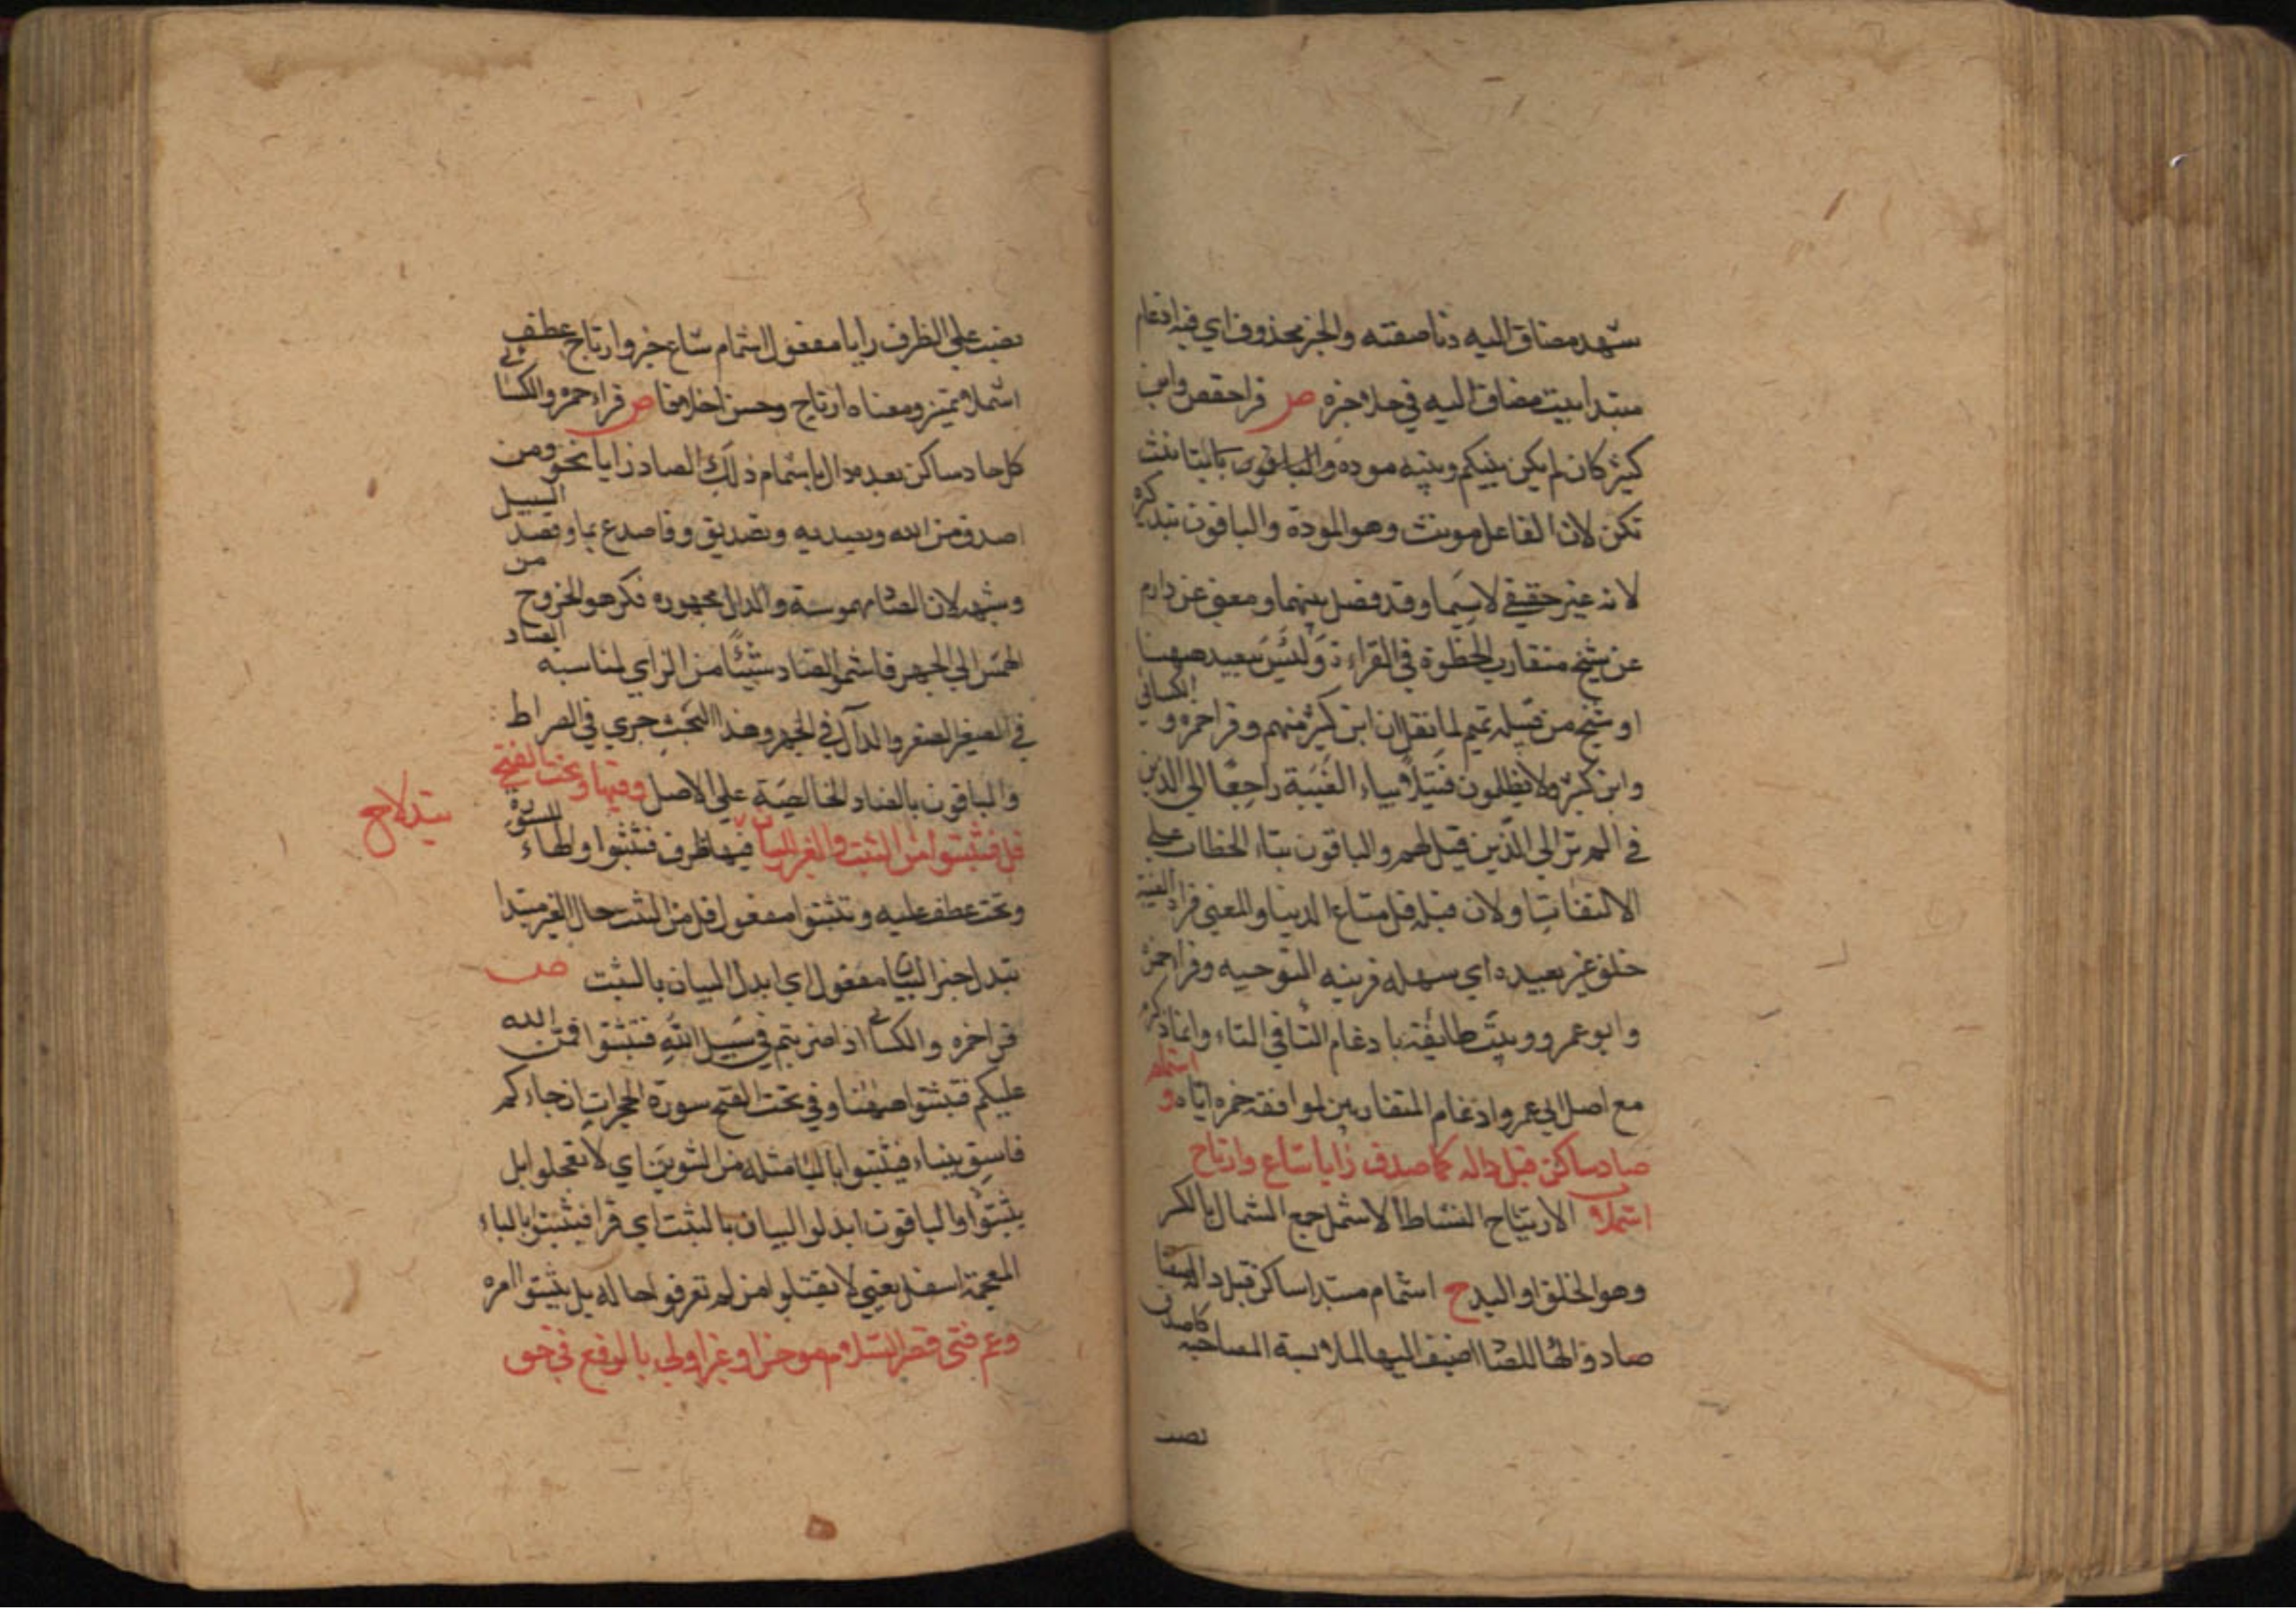 شهد مضاف اليه دنا صفته والخبر محذوف اي فيه ادغام
مبتدا بيت مضاف اليه في حلا خبره ص قرا حفص وابن
كثير كان لم يكن بينكم وبينه مودة والباقون بالتانيث
تكن لان الفاعل مونث وهو المودة والباقون بتذكيره
لانه غير حقيقي لاسيما وقد فصل بينهما ومعني عن دارم
عن شيخ متقارب الخطوة في القراءة وليس ببعيد ههنا
او شيخ من قبيلة تميم لما نقل ان ابن كثير منهم وقرا حمزه والكسائي
وابن كثير ولا يظلمون فتيلا بياء الغيبة راجعا الي الذين
في الم تر الي الذين قيل لهم والباقون بتاء الخطاب علي
الالتفات ولان قبله قل متاع الدنيا والمعني قراءة الغيبة
خلق غير بعيده اي سهله قريبه التوجيه وقرا حمزة
وابو عمرو وبيت طايفة بادغام التا في الطاء وانما ذكره
مع اصل ابي عمرو ادغام المتقاربين لموافقة حمزه اياه واشمام
صاد ساكن قبل داله كاصدق زايا شاع وارتاح
اشملا ب الارتياح النشاط الاشمل جمع الشمال بالكسر
وهو الخلق او اليد ح اشمام مبتدا ساكن قبل داله صفتا
صاد والها للصاد اضيف اليها لملابسة المصاحبة كاصدق
نصب
نصب علي الظرف زايا مفعول اشمام شاع خبر وارتاح عطف
اشملا تميز ومعناه ارتاح وحسن اخلاقا ص قراء حمزه والكسائي
كل صاد ساكن بعده دال باشمام ذلك الصاد زايا نحو ومن
اصدق من الله ويصدر به وتصديق وفاصدع بما وقصد السبيل
وشبهه لان الصاد مهموسة والدال مجهوره فكرهوا الخروج من
الهمس الي الجهر فاشموا الصاد شيئا من الزاي لمناسبة الصاد
في الصفير والدال في الجهر وهذا البحث جري في الصراط
والباقون بالصاد الخالصة علي الاصل وفيها وتحت الفتح
قل فتثبتوا من الثبت والغير البيان تبدلا ح فيها ظرف فتثبتوا والهاء للسورة
وتحت عطف عليه وتثبتوا مفعول قل من الثبت حال الغير مبتدا
تبدل خبر البيان مفعول اي ابدل البيان بالثبت ص
قرا حمزه والكسائي اذا ضربتم في سبيل الله فتثبتوا فمن الله
عليكم فتثبتوا ههنا وفي تحت الفتح سورة الحجرات ان جاءكم
فاسق بنباء فتثبتوا بالثا مثلثه من التثبت اي لا تعجلوا بل
تثبتوا والباقون ابدلوا البيان بالثبت اي قرا فتبينوا بالباء
المعجمة اسفل يعني لا تقتلوا من لم تعرفوا حاله بل تبينوا امره
وعم فتي قصر السلام موخرا وغير اولي بالرفع في حق